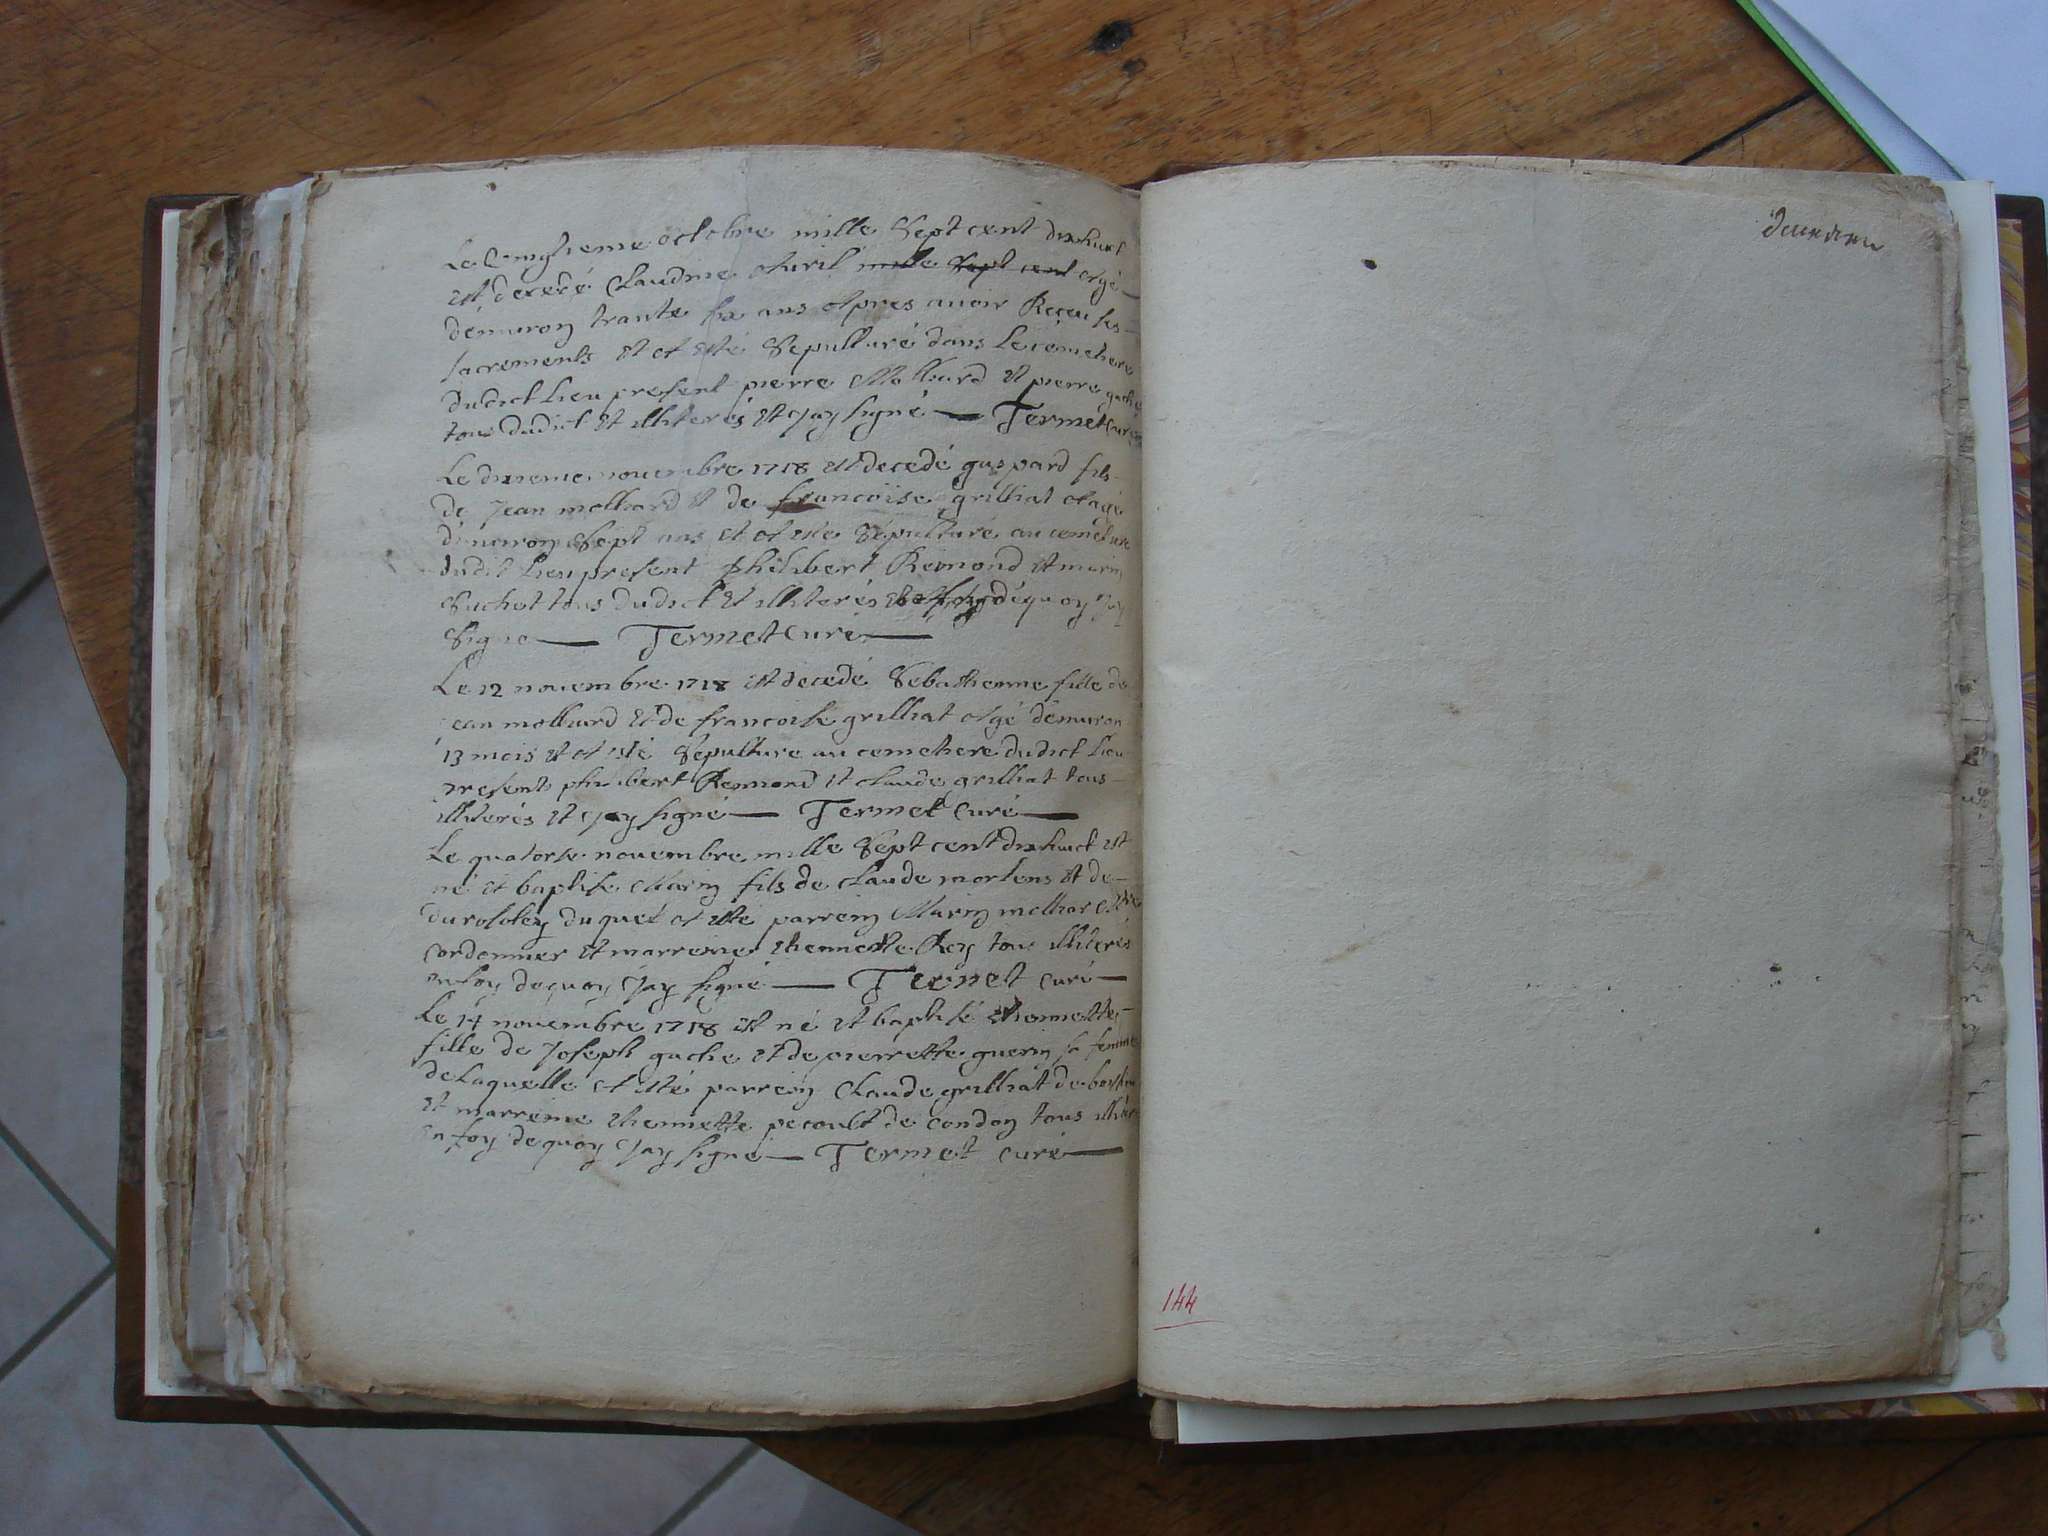 Le vingtieme octobre mille Sept cent dixhuict
est decedé Claudine Avril mille Sept cent agé
d'enuiron trante six ans apres auoir Receu ses
sacrements et at esté Sepulturé dans le cemetiere
dudict Lieu present pierre Molliard et pierre gache
tous dudict et illiterés et j'ay signé Termet curé
Le dixieme nouembre 1718 est decedé guspard fils
de Jean molliard et de francoise grilliat atagé
d'enuiron Sept ans et at esté Sepulturé au cemetiere
dudit Lieu present philibert Remond et marin
Suchet tous dudict et illiterés dequoy j'ay
Signe Termet curé
Le 12 nouembre 1718 est decedé Sebastienne fille de
jean molliard et de francoise grilliat agé d'enuiron
13 mois et at esté Sepulture au cemetiere dudict Lieu
present philibert Remond et claude grilliat tous
illiterés et j'ay signé Termet curé
Le quatorse nouembre mille Sept cent dixhuict est
né et baptise Marin fils de claude morlens et de
duquel at esté parrein Marin molliard
cordonnier et marreine thennette Rey tous illiterés
en foy dequoy j'ay signé Termet curé
Le 14 nouembre 1718 est né et baptisé thennette
fille de Joseph gache et de pierrette guerin sa femme
de Laquelle at esté parrein Claude grilliat de
et marreine thennette pecoult de condon tous illiterés
en foy dequoy j'ay signé Termet curé
144